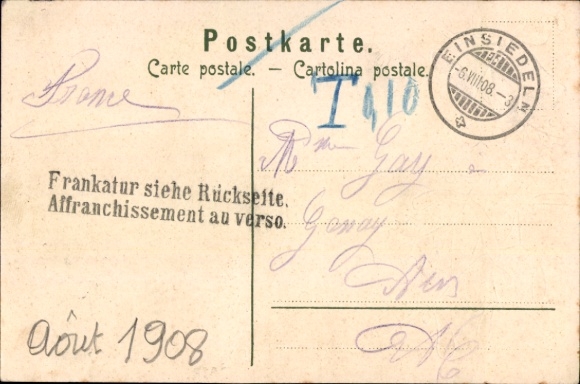 Postkarte.
Carte postale. — Cartolina postale.
EINSIEDELN
-6.VIII.08.-3
T 0,10
France
Frankatur siehe Rückseite.
Affranchissement au verso.
Mme Gay
août 1908